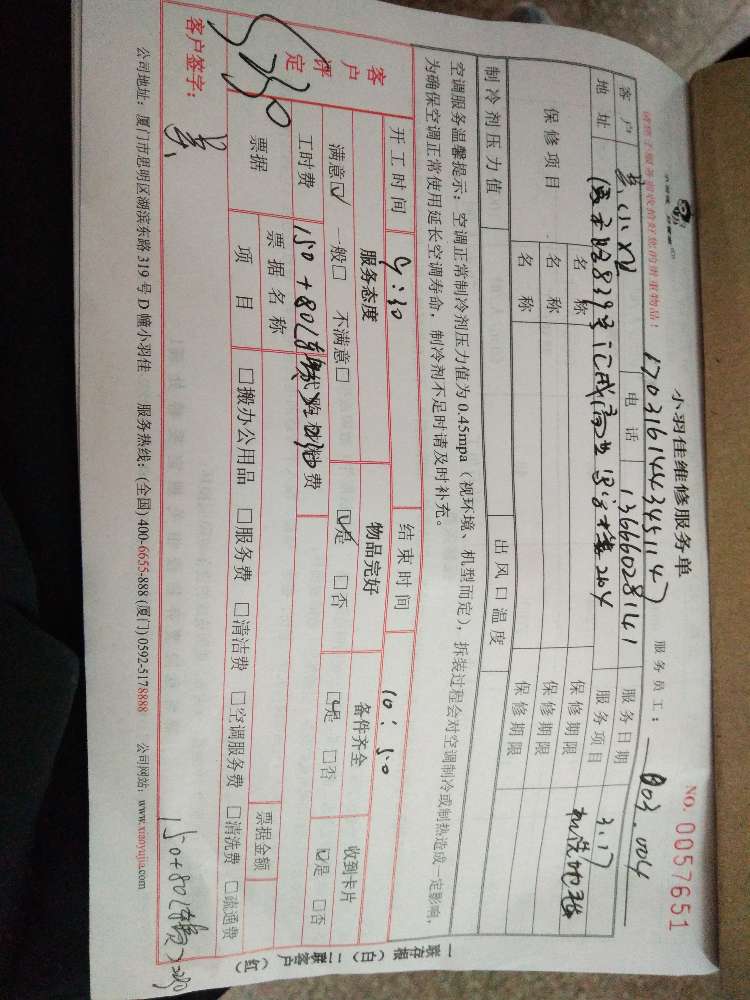 小羽佳维修服务单
NO. 0057651
请您予服务前收拾好您的贵重物品!
1703161443451147
服务员工: 003.004
客户
电话 13666028141
服务日期 3.17
地址
服务项目 机洗地毯
保修项目
名称 保修期限
名称 保修期限
名称 保修期限
制冷剂压力值 出风口温度
空调服务温馨提示:空调正常制冷剂压力值为0.45mpa(视环境、机型而定),拆装过程会对空调制冷或制热造成一定影响,
为确保空调正常使用延长空调寿命,制冷剂不足时请及时补充。
客户评定
开工时间 9:30 结束时间 10:50
服务态度 物品完好 备件齐全 收到卡片
满意☑ 一般□ 不满意□ ☑是 □否 ☑是 □否 ☑是 □否
工时费 150+80 代购材料费
票据 票据名称 票据金额
项目 □搬办公用品 □服务费 □清洁费 □空调服务费 □清洗费 □疏通费
客户签字:
150+80
公司地址: 厦门市思明区湖滨东路319号D幢小羽佳 服务热线: (全国) 400-6655-888 (厦门) 0592-5178888 公司网站: www.xiaoyujia.com
一联存根(白) 二联客户(红)